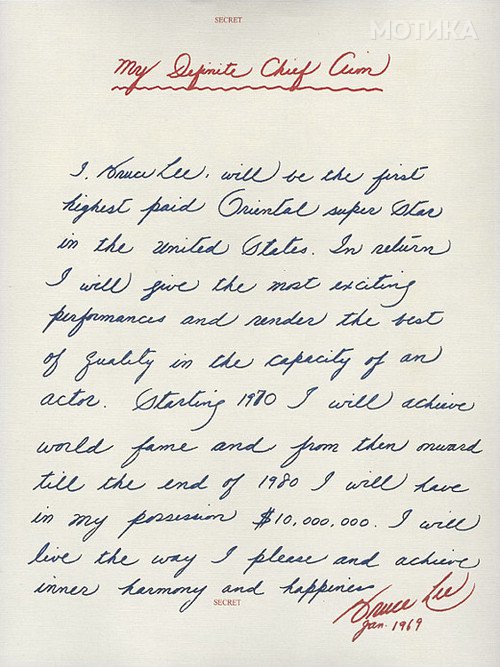 МОТИКА
SECRET
My Definite Chief Aim
I, Bruce Lee, will be the first
highest paid Oriental super star
in the united States. In return
I will give the most exciting
performances and render the best
of quality in the capacity of an
actor. Starting 1970 I will achieve
world fame and from then onward
till the end of 1980 I will have
in my possession $10,000,000. I will
live the way I please and achieve
inner harmony and happiness
SECRET
Bruce Lee
Jan. 1969